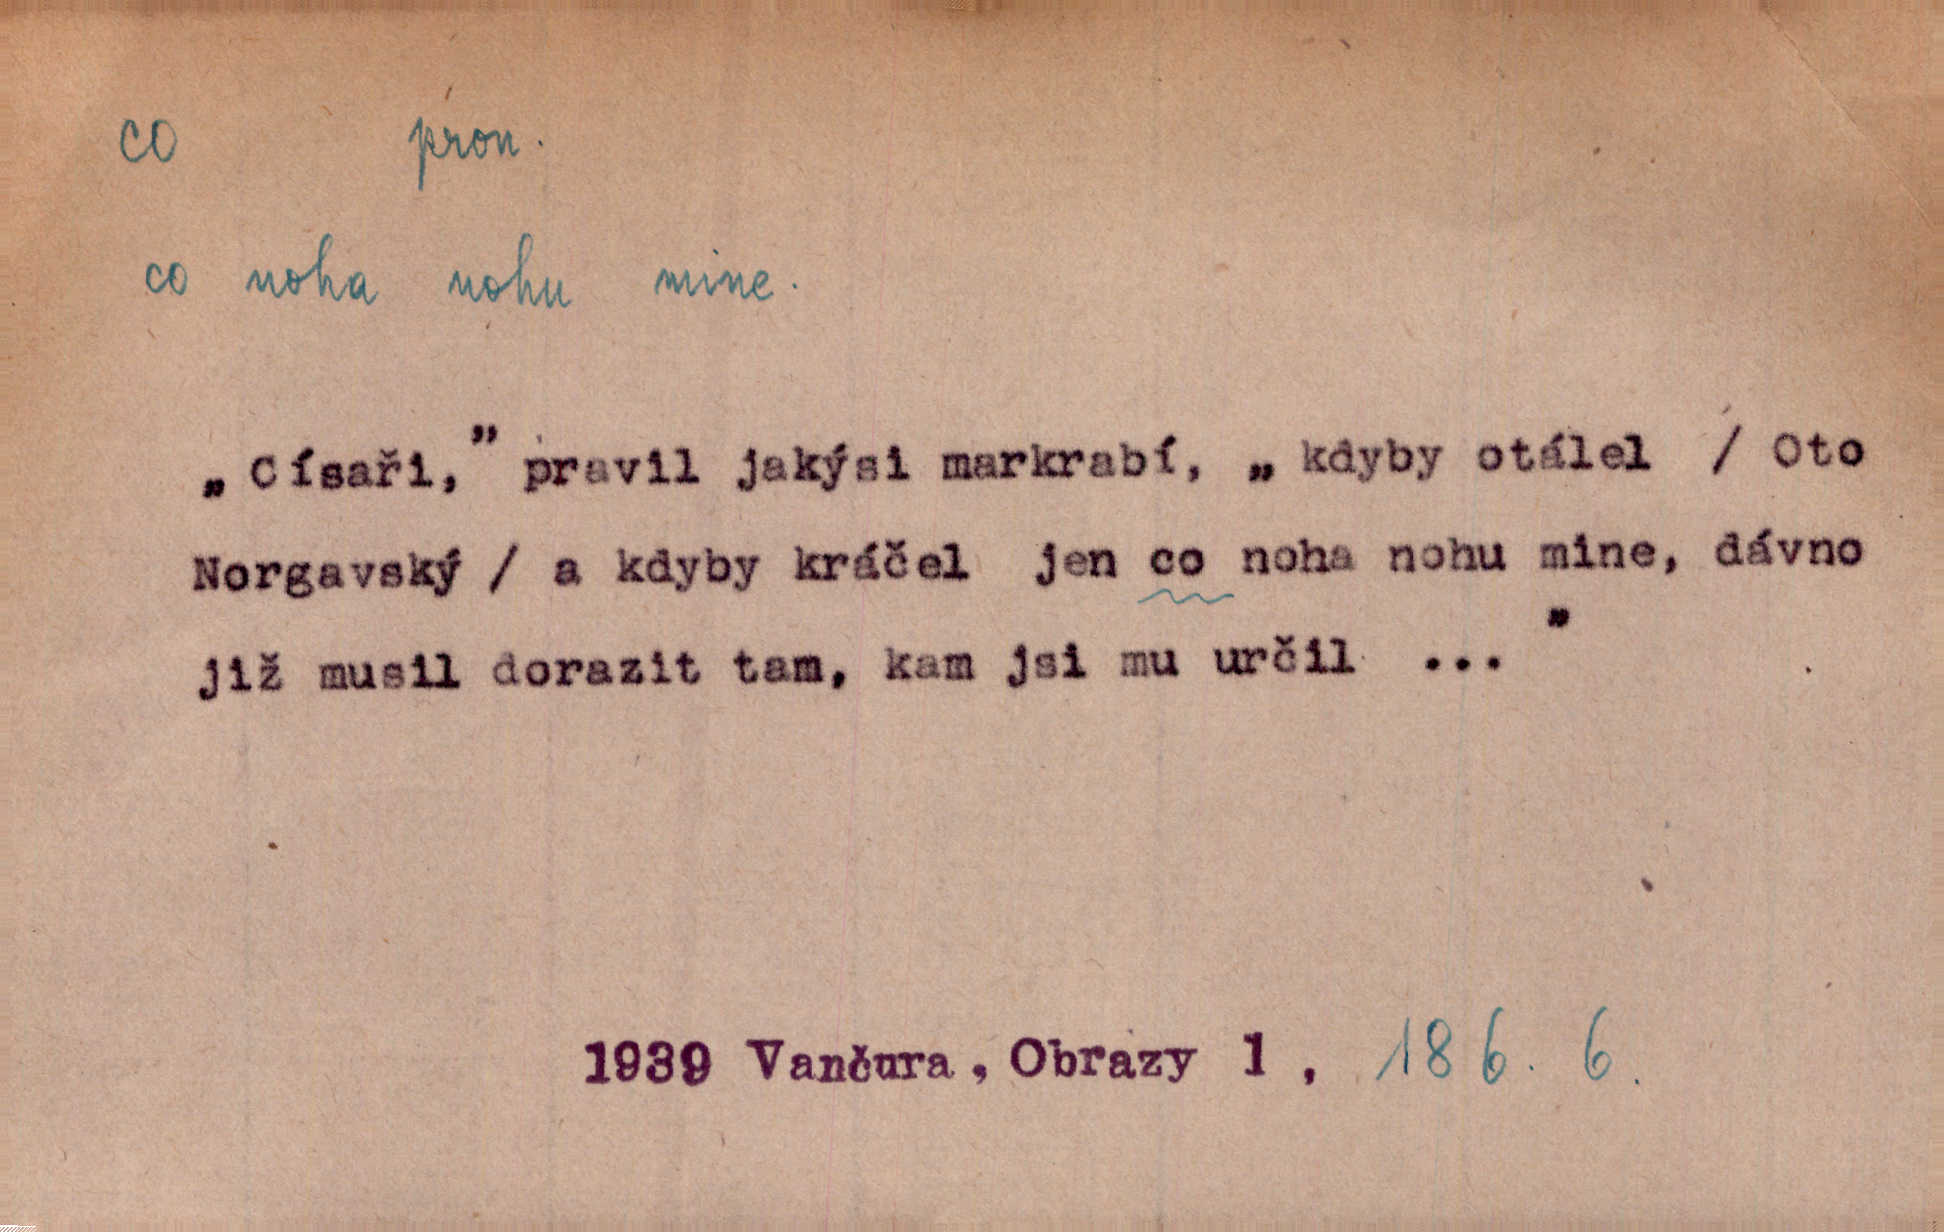 co pron.
co noha nohu mine.
„Císaři,” pravil jakýsi markrabí, „kdyby otálel / Oto
Norgavský / a kdyby kráčel jen co noha nohu mine, dávno
již musil dorazit tam, kam jsi mu určil ..."
1939 Vančura, Obrazy 1, 186. 6.